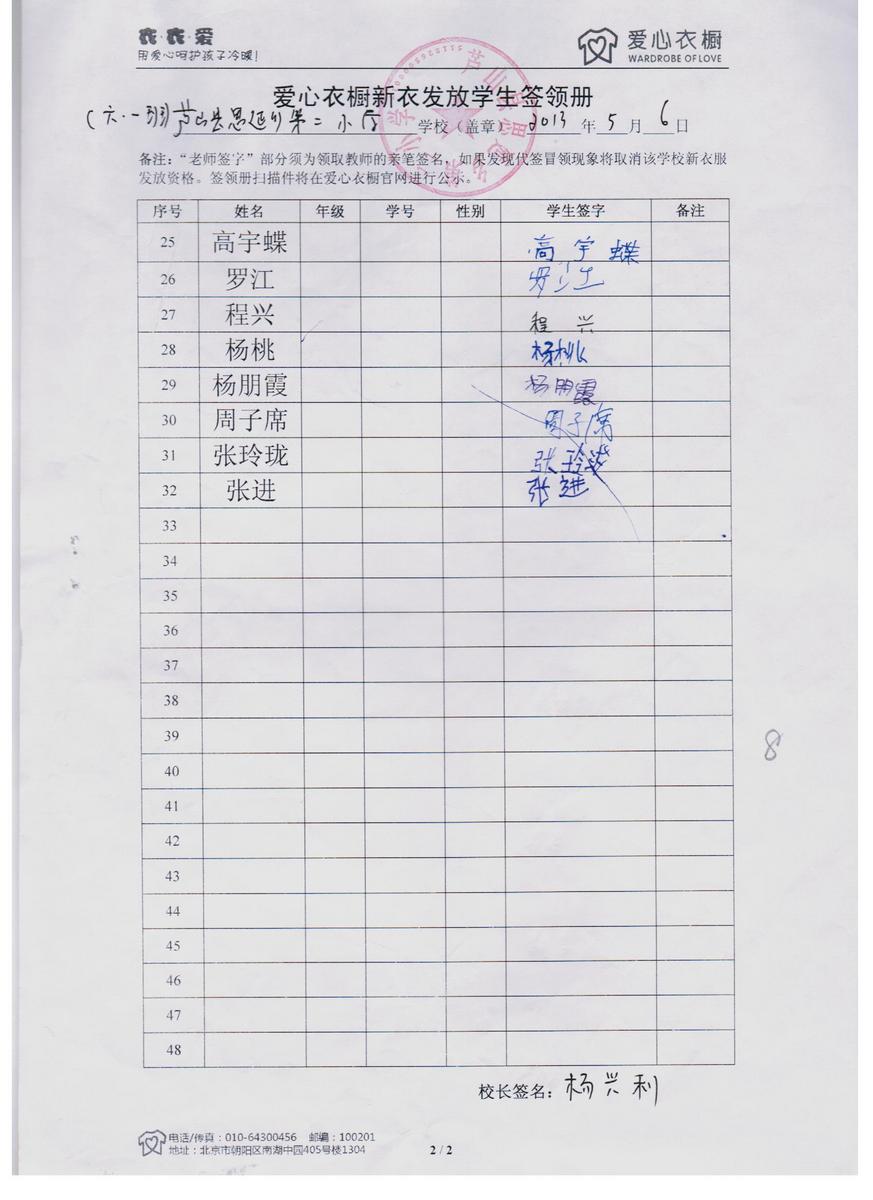 衣·衣·爱
用爱心呵护孩子冷暖!
爱心衣橱
WARDROBE OF LOVE
爱心衣橱新衣发放学生签领册
(六·一班)芦山县思延乡第二小学 学校(盖章) 2013 年 5 月 6 日
备注:“老师签字”部分须为领取教师的亲笔签名,如果发现代签冒领现象将取消该学校新衣服
发放资格。签领册扫描件将在爱心衣橱官网进行公示。
序号 姓名 年级 学号 性别 学生签字 备注
25 高宇蝶 高宇蝶
26 罗江 罗江
27 程兴 程兴
28 杨桃 杨桃
29 杨朋霞 杨朋霞
30 周子席 周子席
31 张玲珑 张玲珑
32 张进 张进
33
34
35
36
37
38
39
8
40
41
42
43
44
45
46
47
48
校长签名: 杨兴利
电话/传真:010-64300456 邮编:100201
地址:北京市朝阳区南湖中园405号楼1304
2 / 2